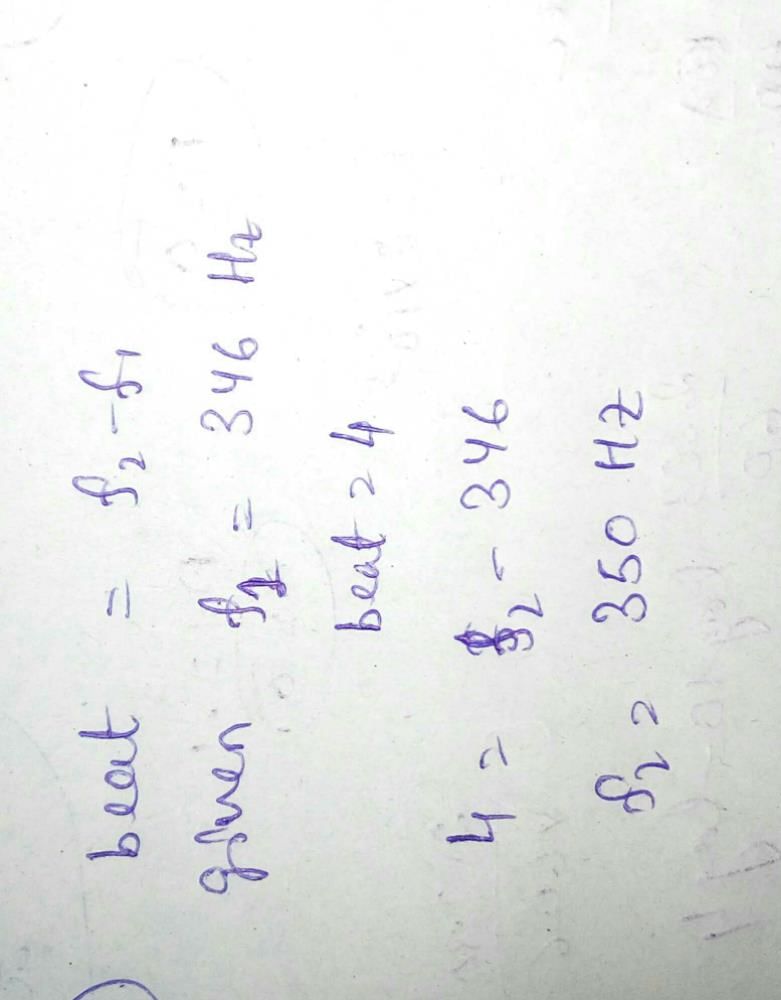 beat = f2 - f1
given f1 = 346 Hz
beat = 4
4 = f2 - 346
f2 = 350 Hz